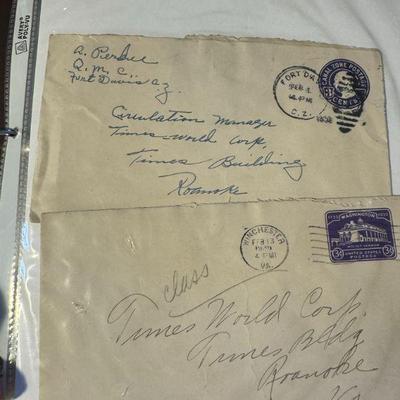 AVERY®
POLY-VU
A. Pierdee
Q. M. C.
Fort Davis C.Z.
FORT DAVIS
FEB 1
4 PM
1932
C.Z.
CANAL ZONE POSTAGE
3
CENTS
Circulation Manager
Times-World Corp.
Times Building
Roanoke
WINCHESTER
FEB 13
4 PM
VA.
1732 WASHINGTON 1932
MOUNT VERNON
3¢ UNITED STATES 3¢
POSTAGE
Class
Times World Corp.
Times Bldg
Roanoke
Va